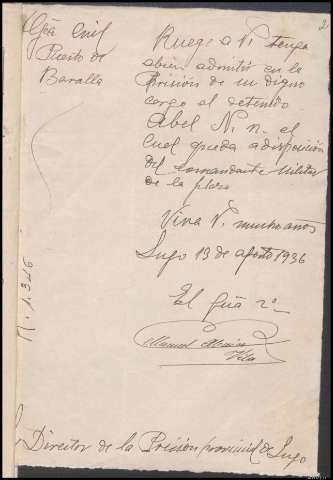 Gâa Civil
Puesto de
Baralla
2
Ruego a V. tenga
abien admitir en la
Prisión de su digno
cargo el detenido
Abel N. n. el
cual queda adisposición
del comandante Militar
de la plaza
Viva V. muchos años
Lugo 13 de agosto 1936
El Gûa 2º
Manuel
Vila
N. 1.346
Director de la Prisión provincial de Lugo